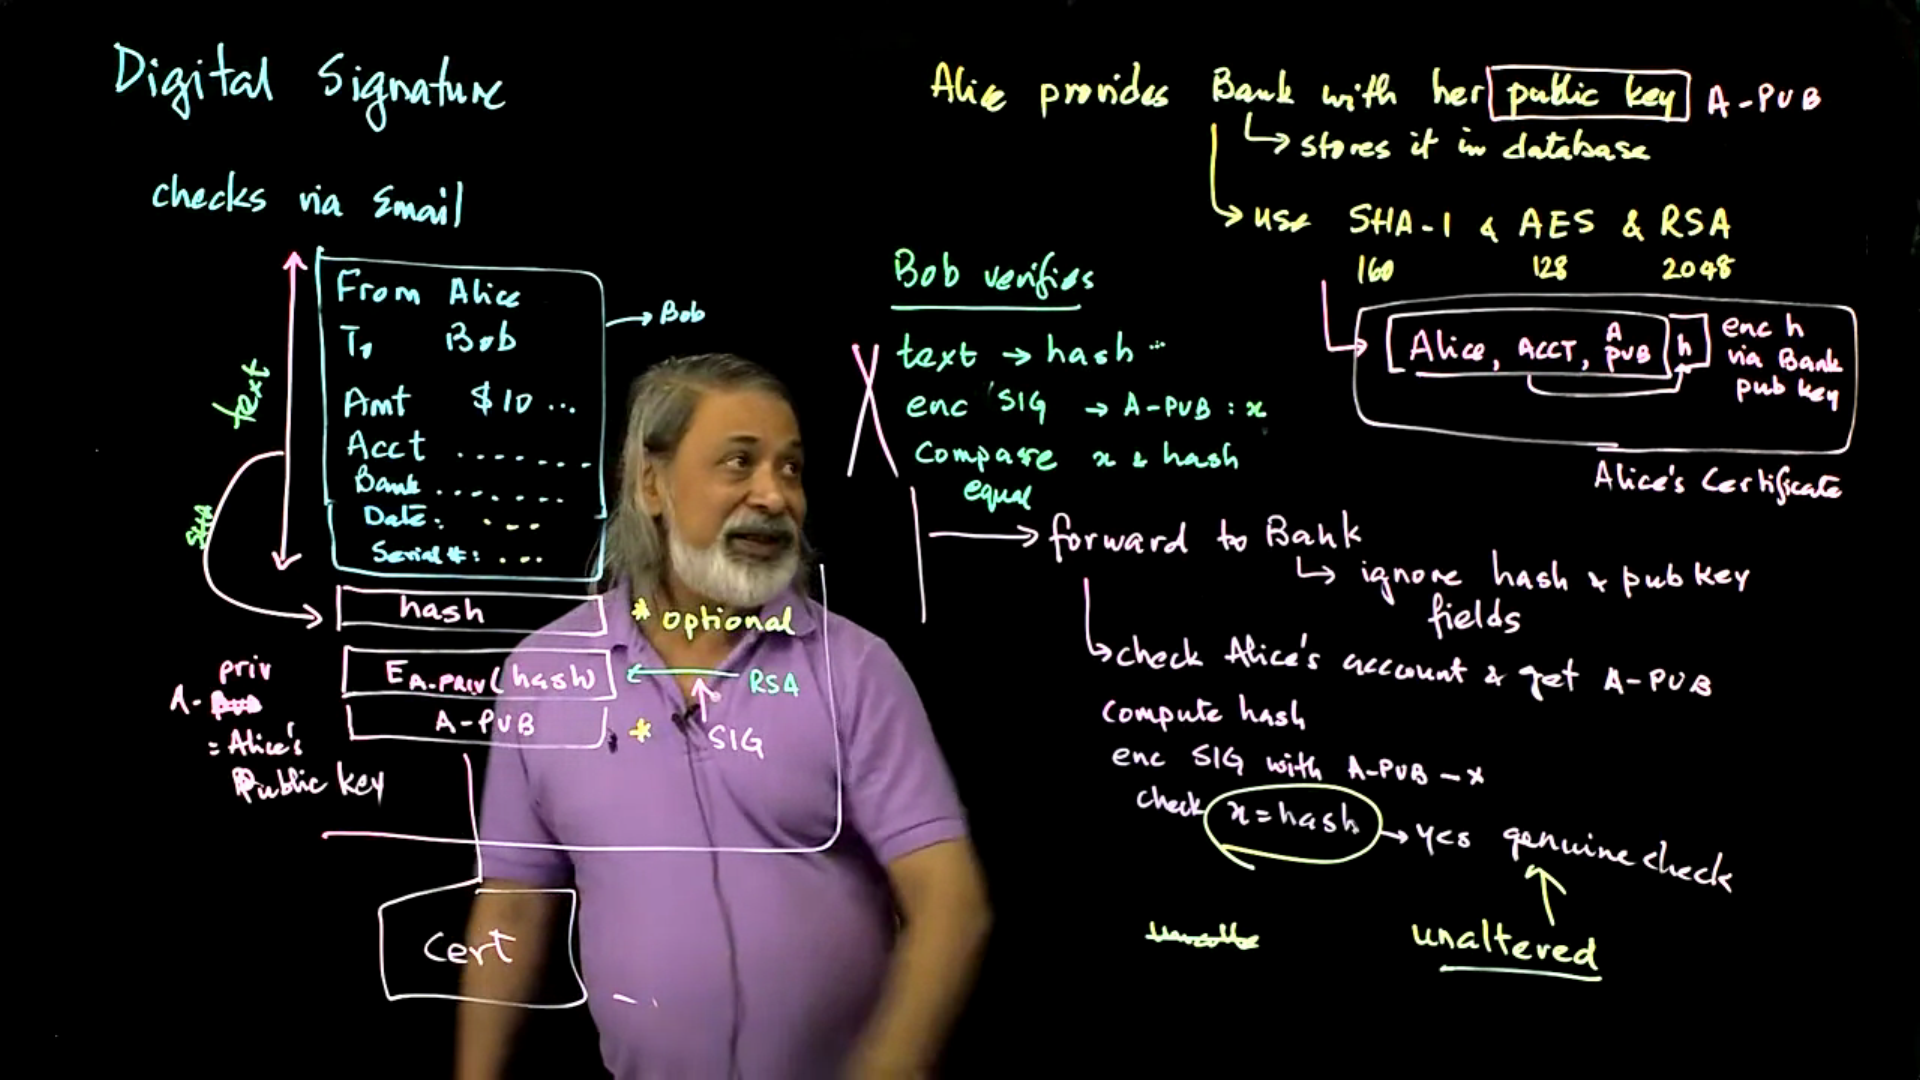 Digital Signature
checks via Email
text
From Alice
To Bob
Amt $10 ...
Acct .......
Bank .......
Date: ...
Serial #: ...
→ Bob
SHA
hash
* optional
E A-PRIV (hash)
RSA
A-PUB
*
SIG
priv
A-
= Alice's
Public key
cert
Alice provides Bank with her public key A-PUB
stores it in database
use SHA-1 & AES & RSA
160 128 2048
Alice, ACCT, A PUB h
enc h
via Bank
pub key
Alice's Certificate
Bob verifies
text → hash ...
enc SIG → A-PUB : x
Compare x & hash
equal
→ forward to Bank
ignore hash & pub key
fields
check Alice's account & get A-PUB
Compute hash
enc SIG with A-PUB - x
check x = hash → yes genuine check
unaltered